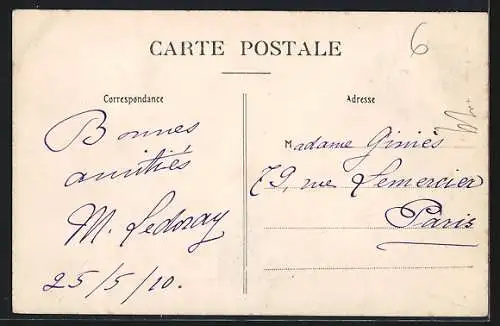 CARTE POSTALE
6
Correspondance
Bonnes
amitiés
M. Ledoray
25/5/10.
Adresse
Madame Giniès
79, rue Lemercier
Paris